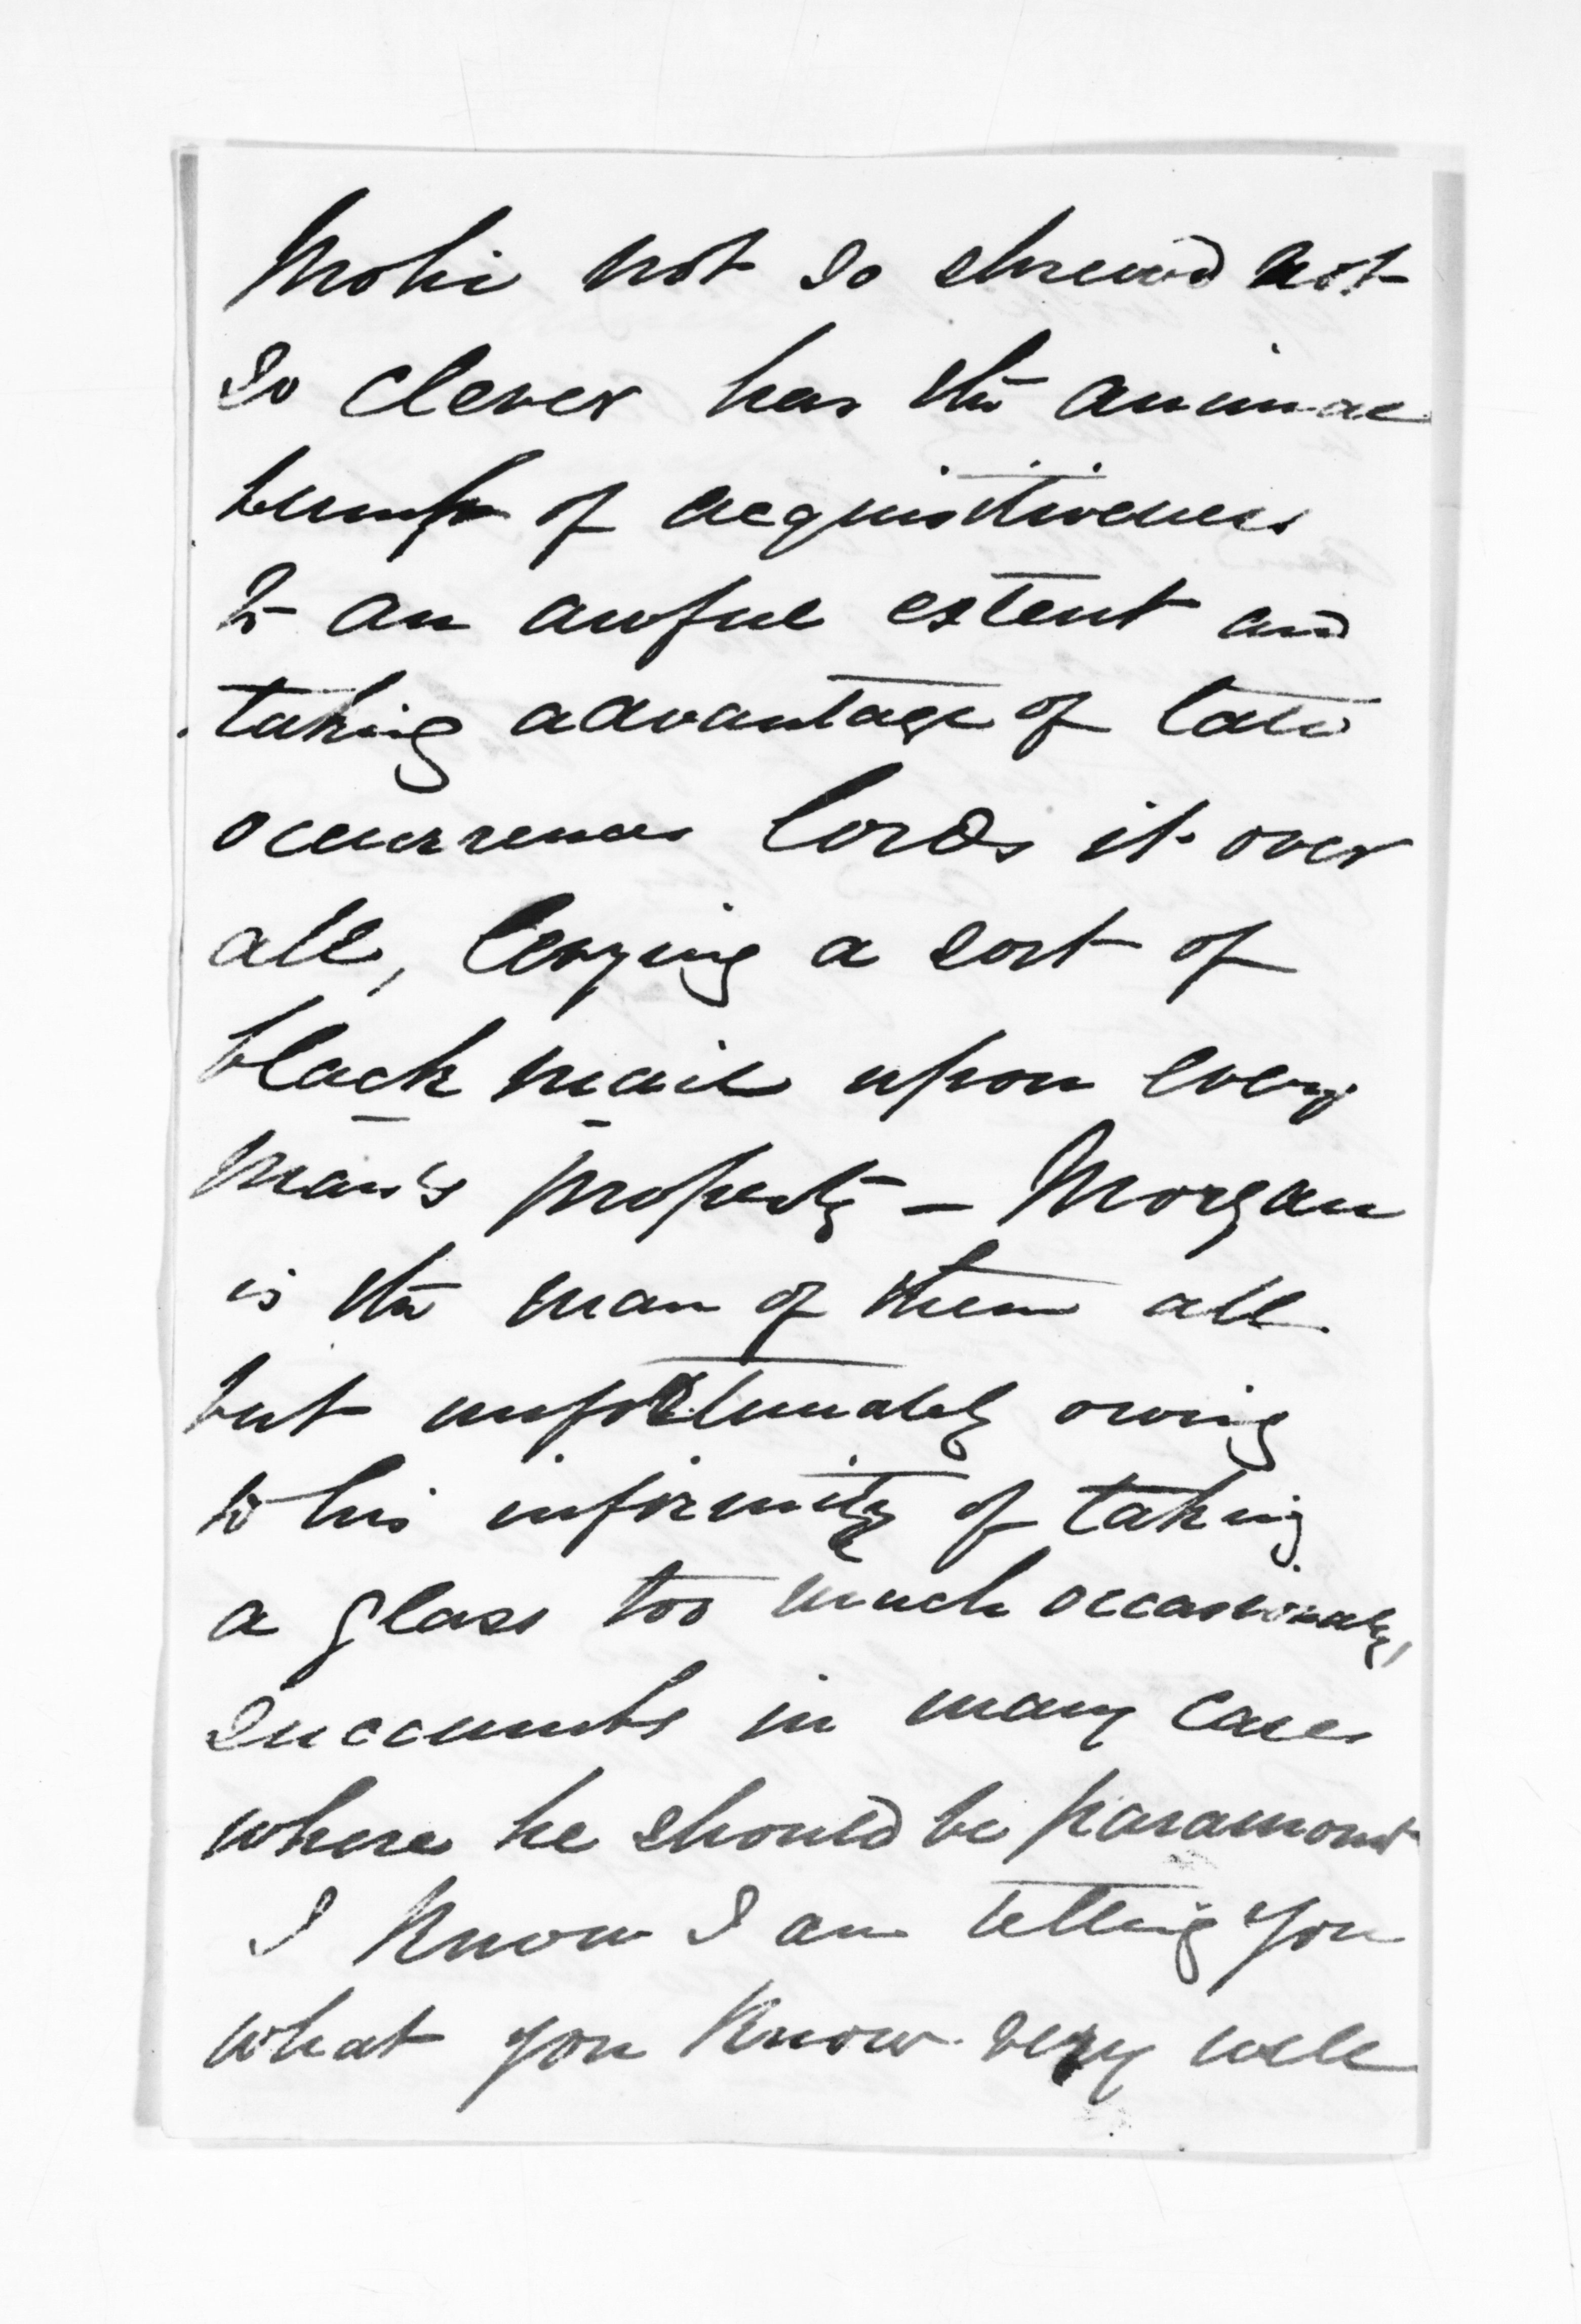 Mohi not so shrewd not
so clever has the animal
bump of acquisitiveness
to an awful extent and
taking advantage of late
occurrences lords it over
all, levying a sort of
black mail upon every
man's property – Morgan
is the man of them all
but unfortunately owing
to his infirmity of taking
a glass too much occasionally,
succumbs in many cases
where he should be paramount
I know I am telling you
what you know very well